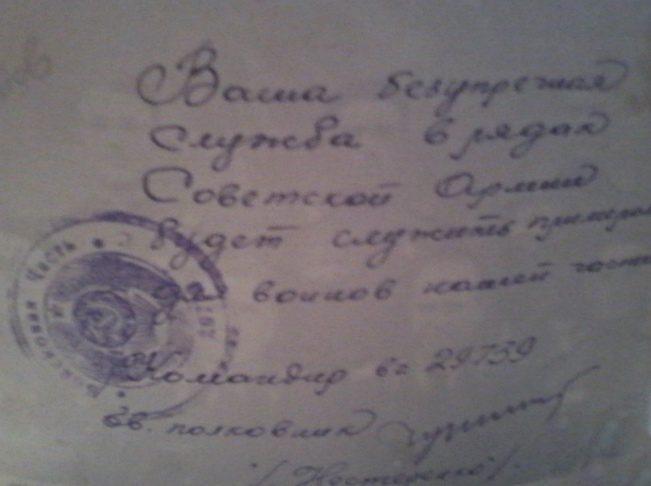 Ваша безупречная
служба в рядах
Советской Армии
будет служить примером
для воинов нашей части
Командир вч 29739
гв. полковник
/Нестеренко/
Войсковая часть